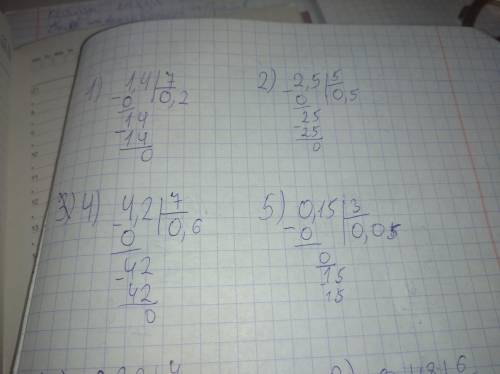 1) 1,4 | 7
- 0 | 0,2
14
- 14
0
2) 2,5 | 5
- 0 | 0,5
25
- 25
0
3) 4) 4,2 | 7
- 0 | 0,6
42
- 42
0
5) 0,15 | 3
- 0 | 0,05
0
15
15